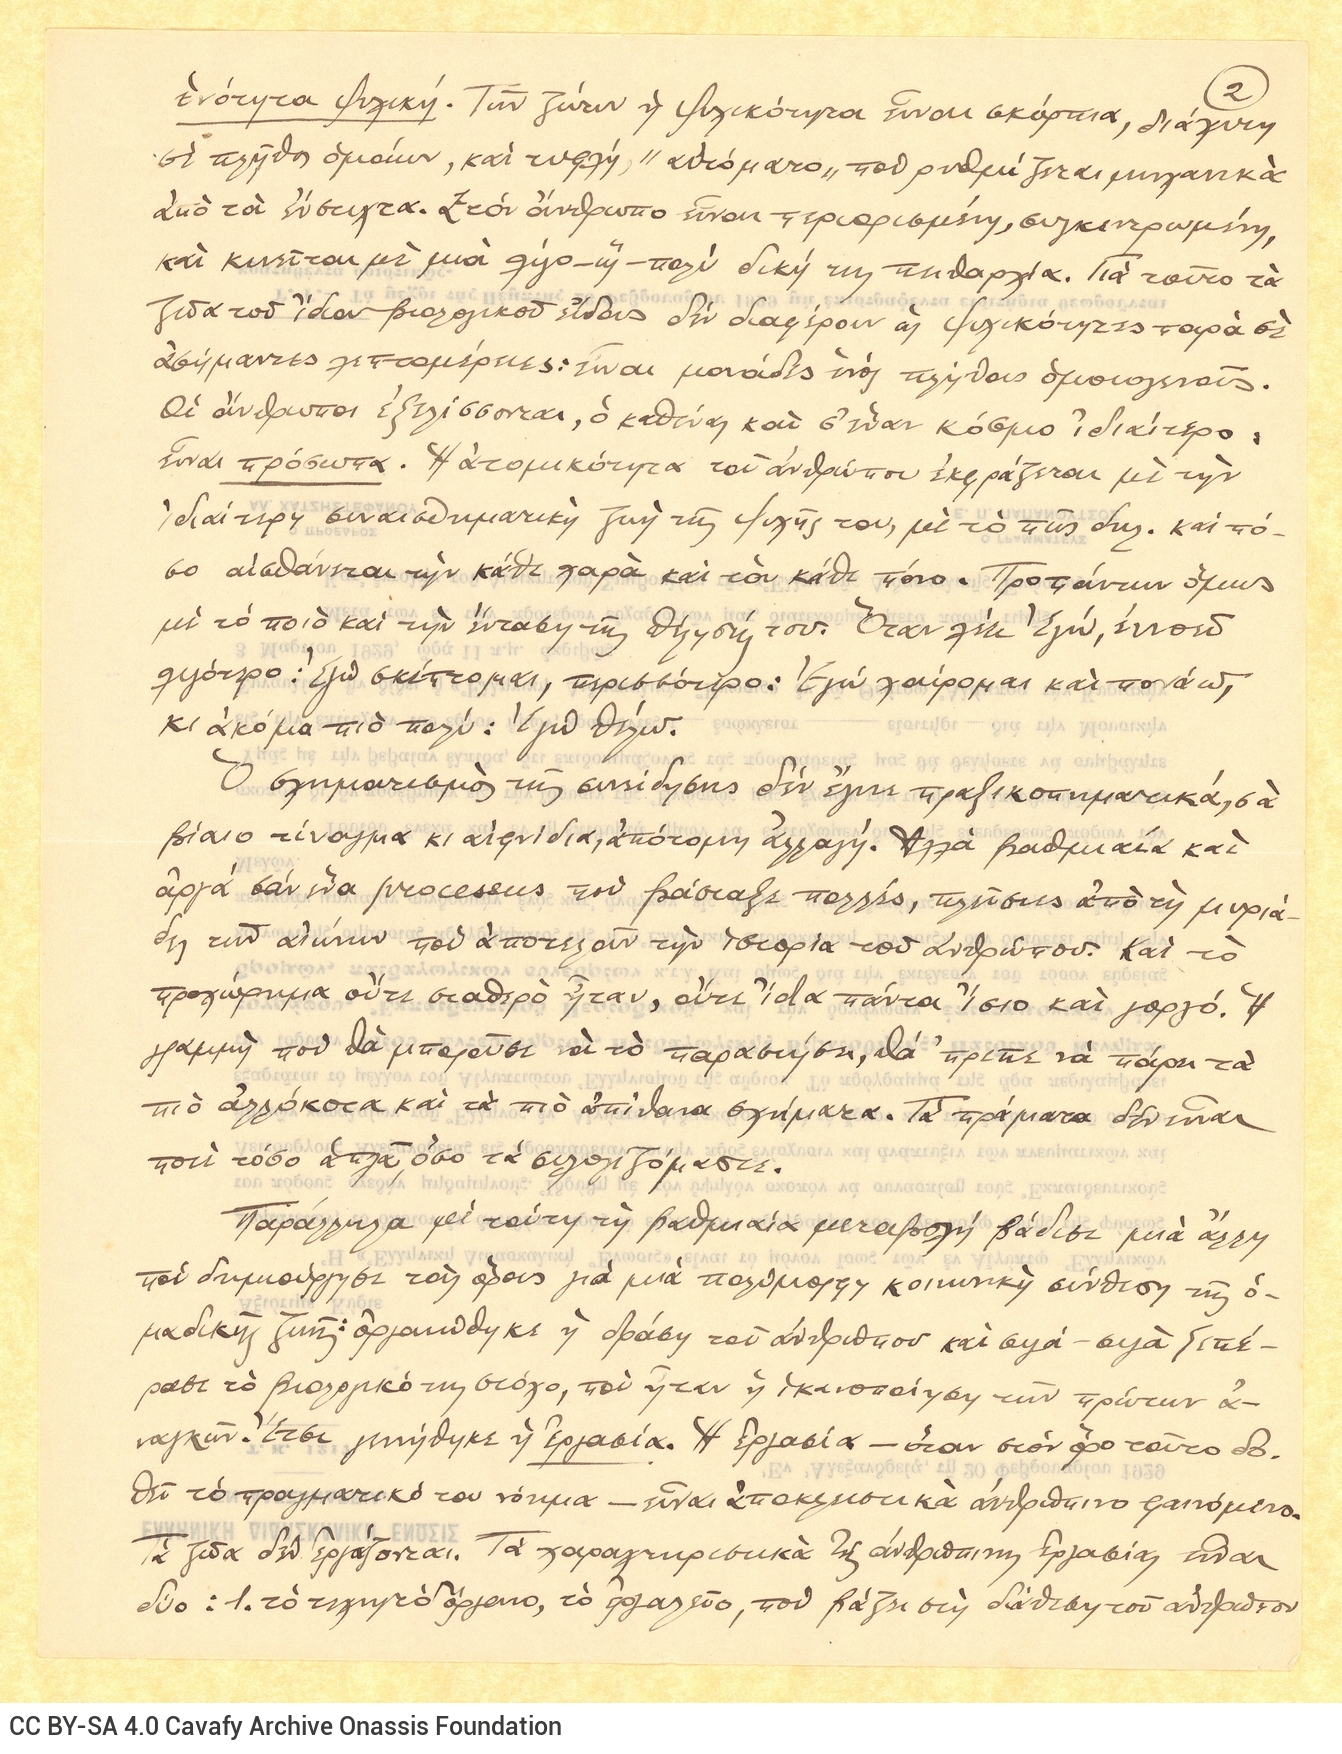 2
ἑνότητα ψυχική. Τῶν ζώων ἡ ψυχικότητα εἶναι σκόρπια, διάχυτη
σὲ πλῆθος ὁμοίων, καὶ τυφλή, "αὐτόματο" ποὺ ρυθμίζεται μηχανικὰ
ἀπὸ τὰ ἔνστιχτα. Στὸν ἄνθρωπο εἶναι περιορισμένη, συγκεντρωμένη,
καὶ κινεῖται μὲ μιὰ λίγο-ἢ-πολὺ δική της πειθαρχία. Γιὰ τοῦτο τὰ
ζῶα τοῦ ἴδιου βιολογικοῦ εἴδους δὲν διαφέρουν ὡς ψυχικότητες παρὰ σὲ
ἀσήμαντες λεπτομέρειες: εἶναι μονάδες ἑνὸς πλήθους ὁμοιογενοῦς.
Οἱ ἄνθρωποι ἐξελίσσονται, ὁ καθένας καὶ σ' ἕναν κόσμο ἰδιαίτερο,
εἶναι πρόσωπα. Ἡ ἀτομικότητα τοῦ ἀνθρώπου ἐκφράζεται μὲ τὴν
ἰδιαίτερη συναισθηματικὴ ζωὴ τῆς ψυχῆς του, μὲ τὸ πῶς δηλ. καὶ πό-
σο αἰσθάνεται τὴν κάθε χαρὰ καὶ τὸν κάθε πόνο. Προπάντων ὅμως
μὲ τὸ ποιὸ καὶ τὴν ἔνταση τῆς θέλησής του. Ὅταν λέει Ἐγώ, ἐννοεῖ
λιγότερο: Ἐγὼ σκέπτομαι, περισσότερο: Ἐγὼ χαίρομαι καὶ πονάω,
κι ἀκόμα πιὸ πολύ: Ἐγὼ θέλω.
Ὁ σχηματισμὸς τῆς συνείδησης δὲν ἔγινε πραξικοπηματικά, σὰ
βίαιο τίναγμα κι αἰφνίδια, ἀπότομη ἀλλαγή. Ἀλλὰ βαθμιαία καὶ
ἀργά σὰν ἕνα processus ποὺ βάσταξε πολλές, πλεῖστες ἀπὸ τὴ μυριά-
δα τῶν αἰώνων ποὺ ἀποτελοῦν τὴν ἱστορία τοῦ ἀνθρώπου. Καὶ τὸ
προχώρημα οὔτε σταθερὸ ἦταν, οὔτε ἴδια πάντα ἴσιο καὶ γοργό. Ἡ
γραμμὴ ποὺ θὰ μποροῦσε νὰ τὸ παραστήσει, θὰ 'πρεπε νὰ πάρει τὰ
πιὸ ἀλλόκοτα καὶ τὰ πιὸ ἀπίθανα σχήματα. Τὰ πράματα δὲν εἶναι
ποτὲ τόσο ἁπλᾶ ὅσο τὰ συλλογιζόμαστε.
Παράλληλα μὲ τούτη τὴ βαθμιαία μεταβολὴ βάδισε μιὰ ἄλλη
ποὺ δημιούργησε τοὺς ὅρους γιὰ μιὰ πολύμορφη κοινωνικὴ σύνθεση τῆς ὁ-
μαδικῆς ζωῆς: ὀργανώθηκε ἡ δράση τοῦ ἀνθρώπου καὶ σιγά-σιγὰ ξεπέ-
ρασε τὸ βιολογικό της στόχο, ποὺ ἦταν ἡ ἱκανοποίηση τῶν πρώτων ἀ-
ναγκῶν. Ἔτσι γεννήθηκε ἡ Ἐργασία. Ἡ Ἐργασία — ὅταν στὸν ὅρο τοῦτο δο-
θεῖ τὸ πραγματικό του νόημα — εἶναι ἀποκλειστικὰ ἀνθρώπινο φαινόμενο.
Τὰ ζῶα δὲν ἐργάζονται. Τὰ χαραχτηριστικὰ τῆς ἀνθρώπινης Ἐργασίας εἶναι
δύο: 1. τὸ τεχνητὸ ὄργανο, τὸ ἐργαλεῖο, ποὺ βάζει στὴ διάθεση τοῦ ἀνθρώπου
CC BY-SA 4.0 Cavafy Archive Onassis Foundation